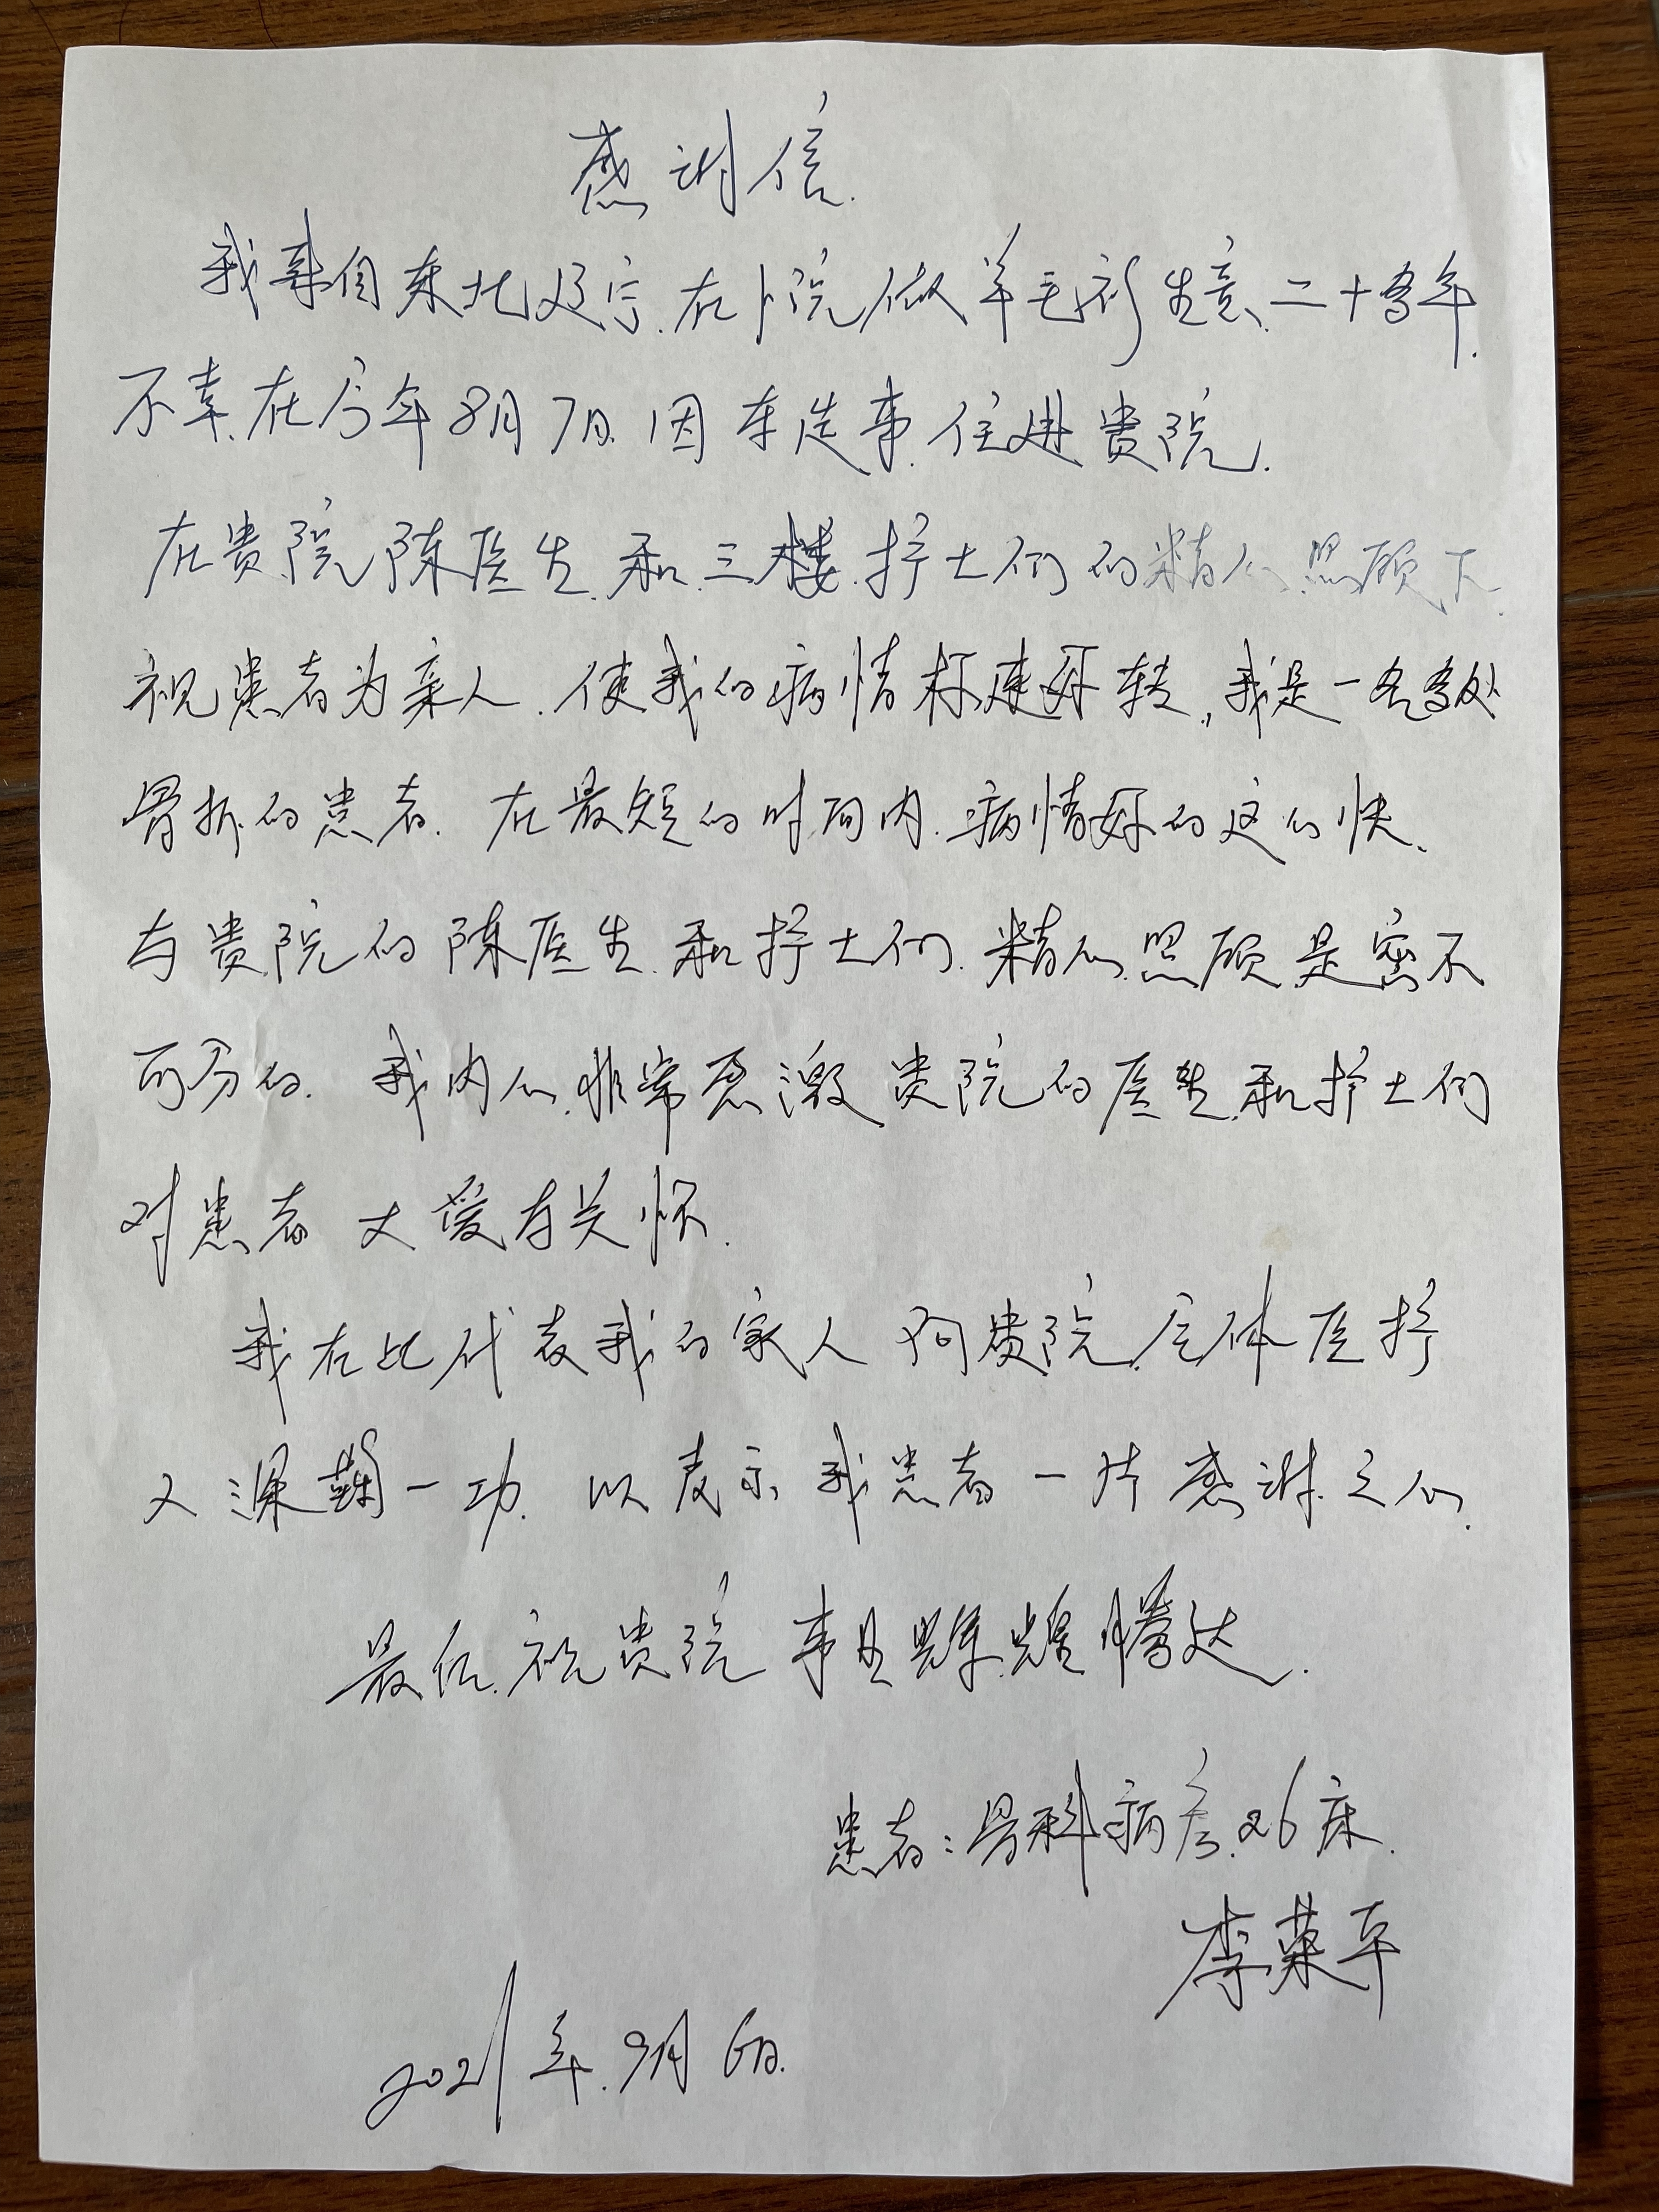 感谢信
我来自东北辽宁.在卜院做羊毛衫生意、二十多年.
不幸.在今年8月7日.因车造事.住进贵院.
在贵院陈医生.和.三楼.护士们的精心.照顾下.
视患者为亲人.使我的病情标速好转,我是一名多处
骨折的患者.在最短的时间内.病情好的这么快、
与贵院的陈医生.和护士们.精心.照顾.是密不
可分的.我内心.非常感激贵院的医生.和护士们
对患者大爱与关怀.
我在此代表我的家人向贵院.全体医护
人深鞠一功.以表示我患者一片感谢.之心.
最后.祝贵院事业辉煌腾达.
患者:骨科病房.26床.
李荣平
2021年.9月6日.